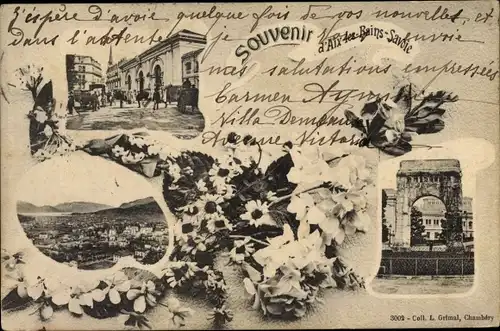 J'espère d'avoie quelque fois de vos nouvelles, et
dans l'attente je vous envoie
nos salutations empressées
Carmen
Villa
Avenue Victoria
Souvenir
d'Aix-les-Bains-Savoie
3002 - Coll. L. Grimal, Chambéry